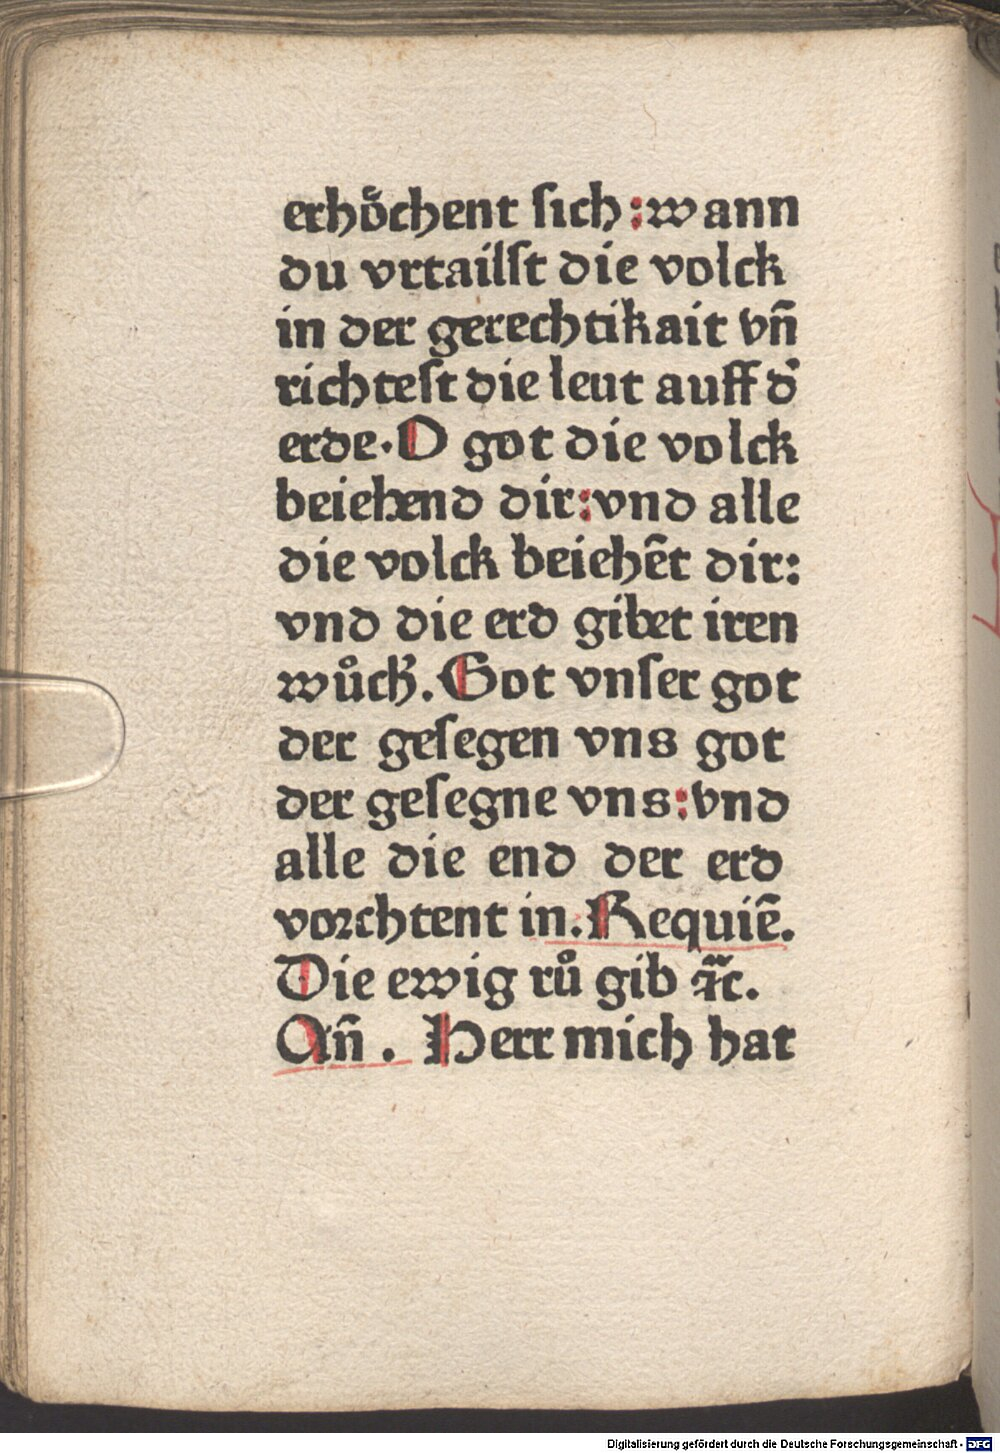 erhoͤchent ſich : wann
du vrtailſt die volck
in der gerechtikait vn̄
richteſt die leut auff d̕
erde. O got die volck
beiehend dir : vnd alle
die volck beiehēt dir:
vnd die erd gibet iren
wůchß. Got vnſer got
der geſegen vns got
der geſegne vns : vnd
alle die end der erd
vorchtent in. Requiē.
Die ewig rů gib ꝛc̃.
An̄. Herr mich hat
Digitalisierung gefördert durch die Deutsche Forschungsgemeinschaft - DFG